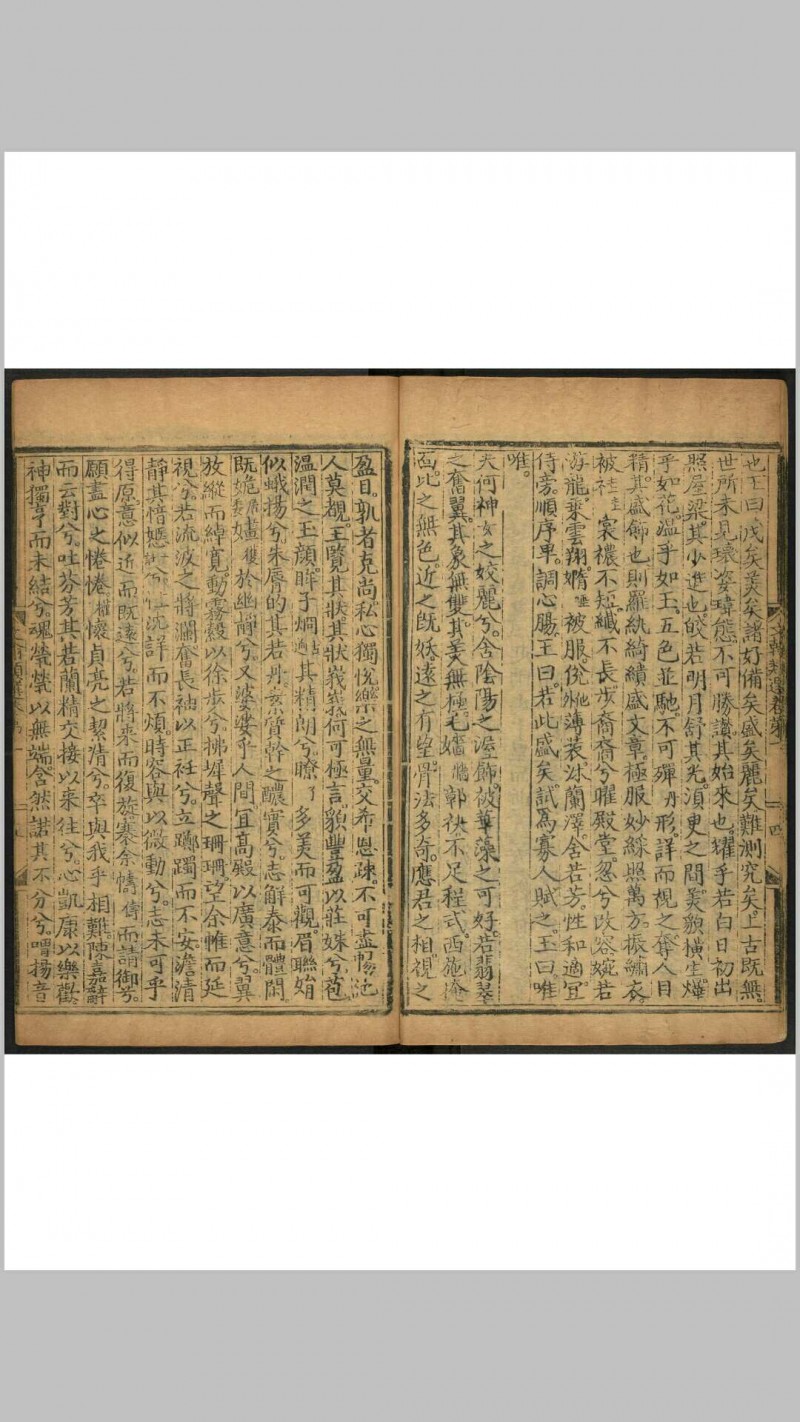 也王曰茂矣美矣諸好備矣盛矣麗矣難測究矣上古既無
世所未見瓌姿瑋態不可勝讚其始來也燿乎若白日初出
照屋梁其少進也皎若明月舒其光湏㬰之間美貌橫生燁
乎如花温乎如玉五色並馳不可殫形詳而視之奪人目
精其盛飾也則羅紈綺繢盛文章極服妙綵照萬方振繡衣
被袿圭裳襛不短纖不長步裔裔兮曜殿堂忽兮改容婉若
游龍乗雲翔嫷被服侻薄装沐蘭澤含若芳性和適冝
侍旁順序卑調心腸王曰若此盛矣試為寡人賦之玉曰唯
唯
夫何神女之姣麗兮含陰陽之渥飾被華藻之可好若翡翠
之奮翼其象無雙其美無極毛嬙鄣袂不足程式西施掩
面比之無色近之既妖遠之有望骨法多奇應君之相視之
盈目孰者克尚私心獨悅樂之無量交希恩疎不可盡暢他
人莫覩玉覽其狀其狀峩峩何可極言貌豐盈以莊姝兮苞
温潤之玉顔眸子烱其精朗兮瞭了多美而可觀眉聮娟
似蛾揚兮朱脣的其若丹素質幹之醲實兮志解泰而體閑
既姽嫿於幽靜兮又婆娑乎人間宜髙殿以廣意兮翼
放縱而綽寛動霧縠以徐步兮拂墀聲之珊珊望余帷而延
視兮若流波之將瀾奮長袖以正衽兮立躑躅而不安澹清
靜其愔嫕兮性沈詳而不煩時容與以微動兮志未可乎
得原意似近而既逺兮若將來而復旋褰余幬而請御兮
願盡心之惓惓懐貞亮之絜清兮卒與我乎相難陳嘉辭
而云對兮吐芬芳其若蘭精交接以来往兮心凱康以樂歡
神獨亨而未結兮魂煢煢以無端含然諾其不分兮喟揚音